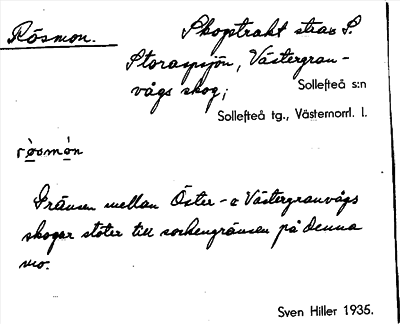 Rösmon.
Skogstrakt strax S.
Storaspsjön, Västergran-
vågs skog;
Sollefteå s:n
Sollefteå tg., Västernorrl. l.
rö̀smón
Gränsen mellan Öster- o Västergranvågs
skogar stöter till sockengränsen på denna
mo.
Sven Hiller 1935.